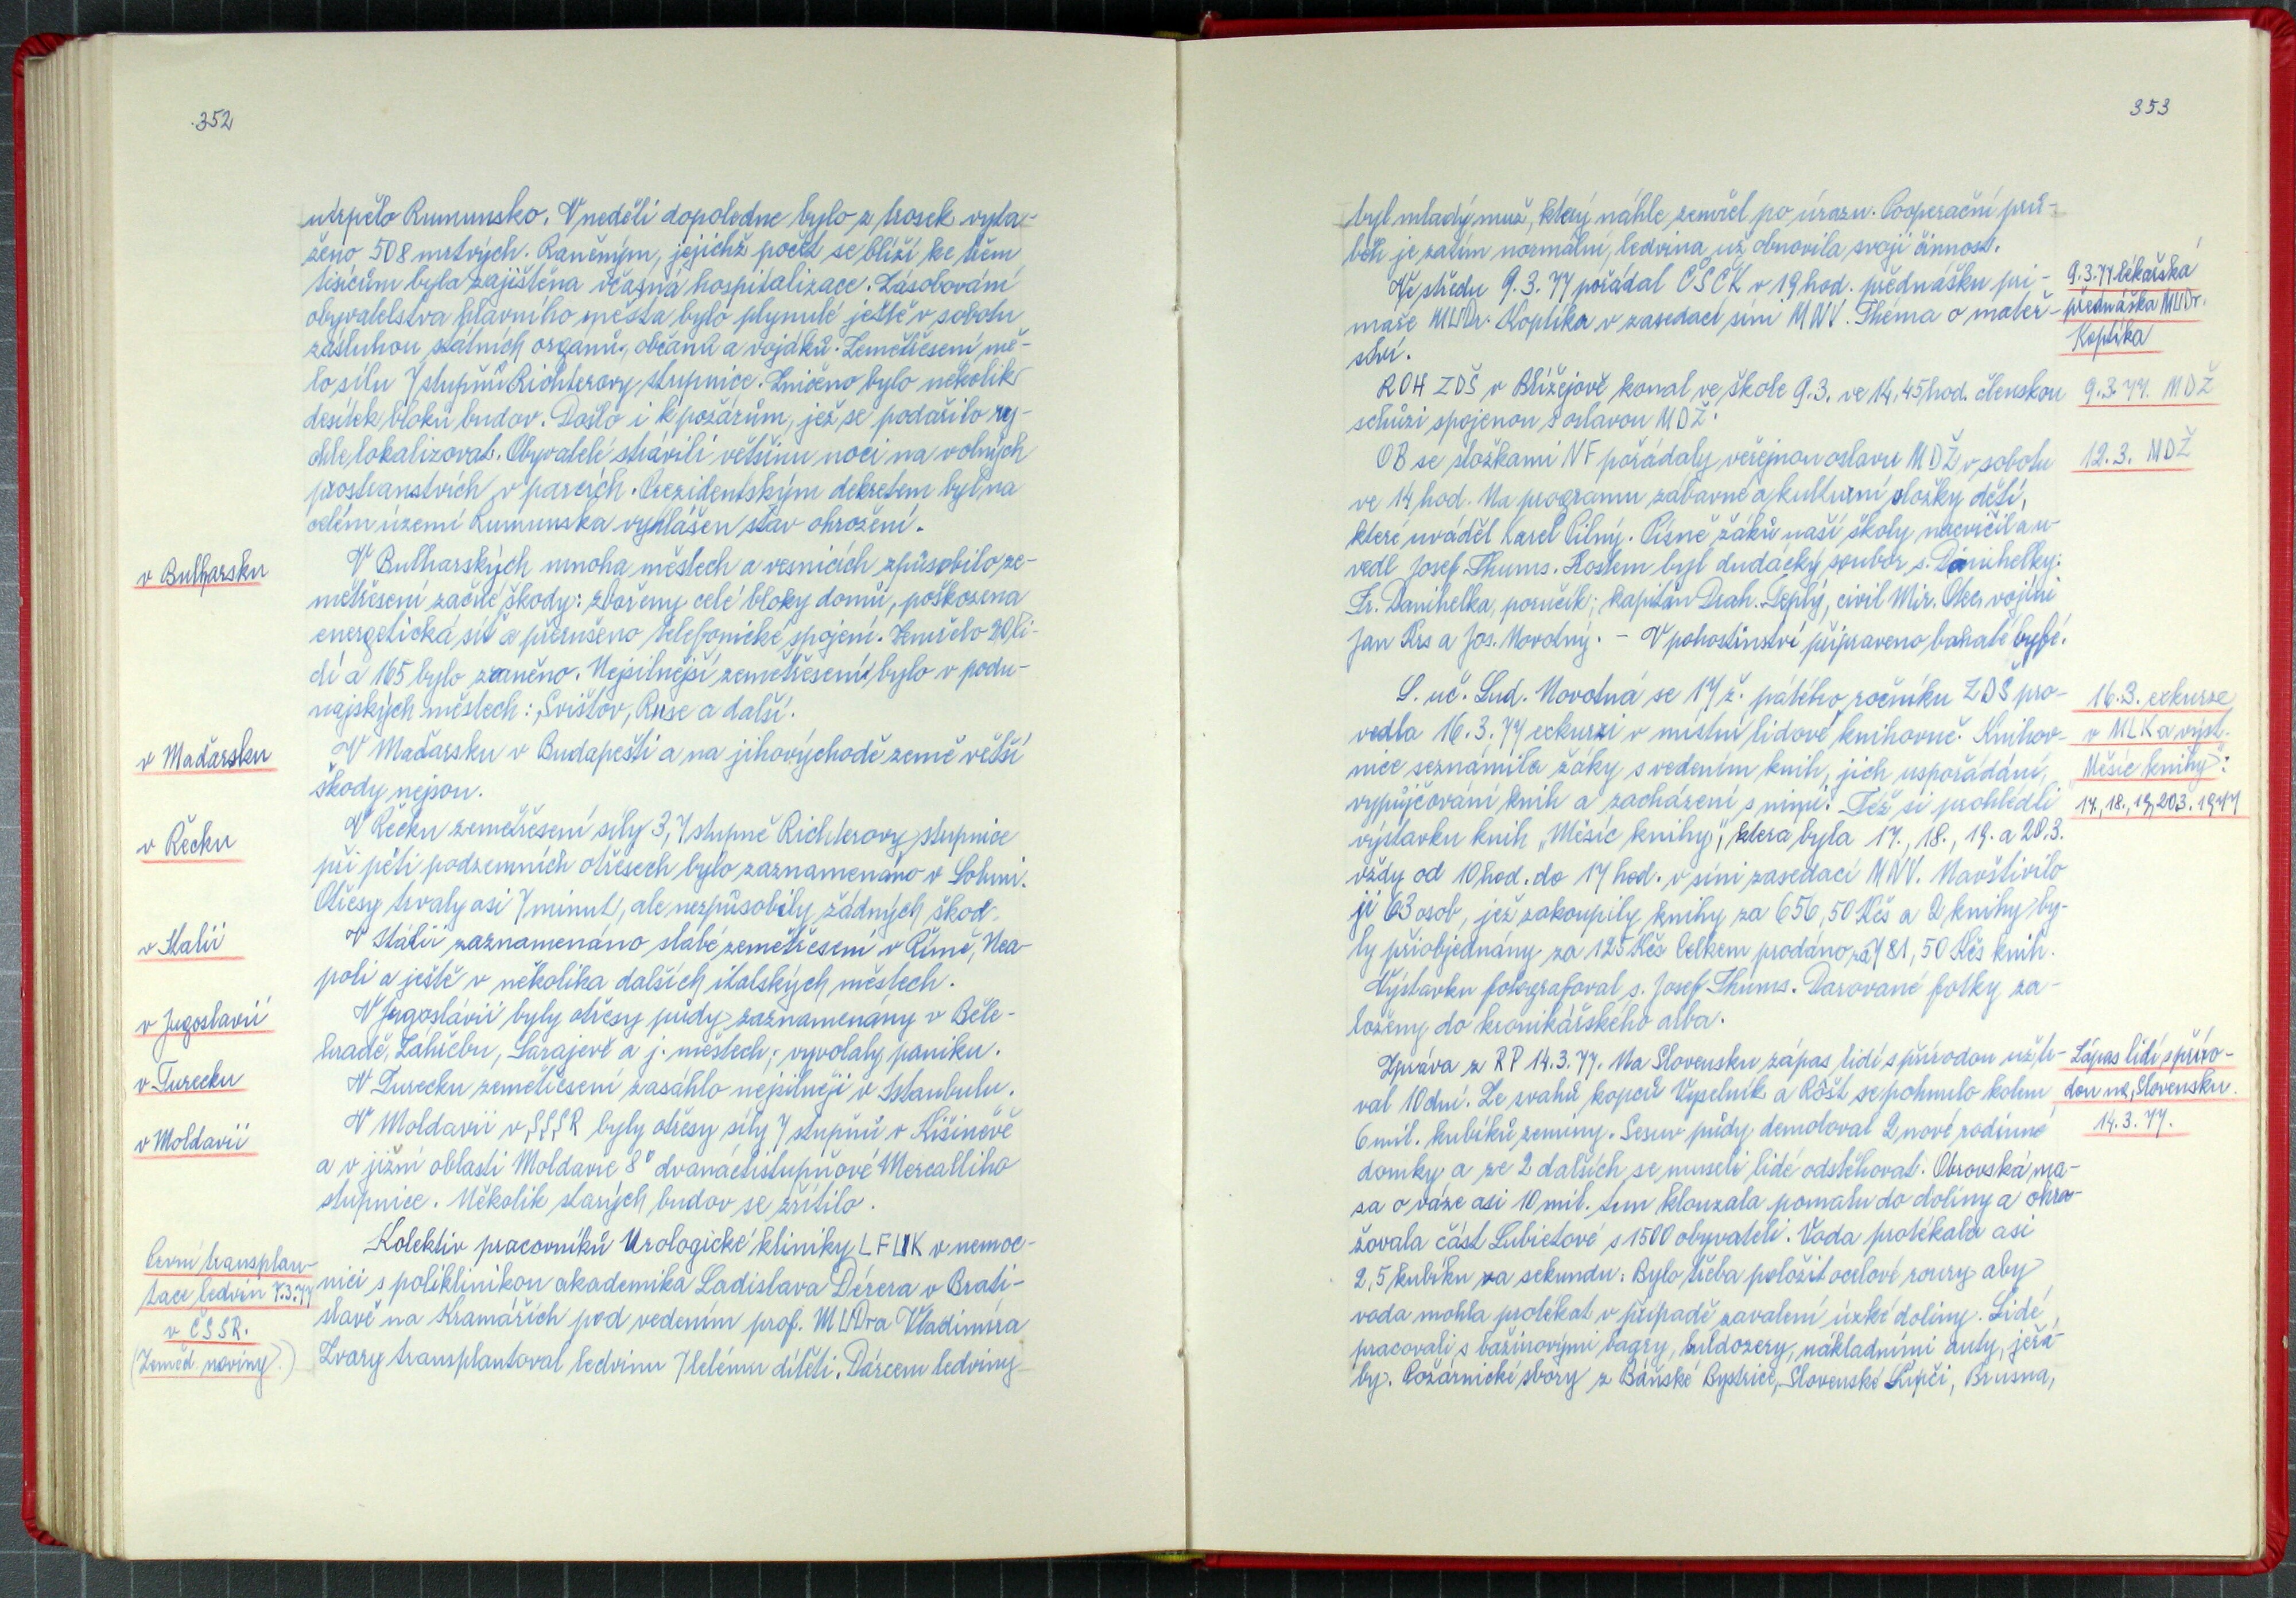 352
utrpělo Rumunsko. V neděli dopoledne bylo z trosek vyta-
ženo 508 mrtvých. Raněným, jejichž počet se blíží ke třem
tisícům byla zajištěna včasná hospitalizace. Zásobování
obyvatelstva hlavního města bylo plynulé ještě v sobotu
zásluhou státních orgánů, občanů a vojáků. Zemětřesení mě-
lo sílu 7 stupňů Richterovy stupnice. Zničeno bylo několik
desítek bloků budov. Došlo i k požárům, jež se podařilo ry-
chle lokalizovat. Obyvatelé strávili většinu noci na volných
prostranstvích v parcích. Prezidentským dekretem byl na
celém území Rumunska vyhlášen stav ohrožení.
v Bulharsku
V Bulharských mnoha městech a vesnicích způsobilo ze-
mětřesení značné škody: zbořeny celé bloky domů, poškozena
energetická síť a přerušeno telefonické spojení. Zemřelo 20 li-
dí a 165 bylo zraněno. Nejsilnější zemětřesení bylo v podu-
najských městech: Svištov, Ruse a další.
v Maďarsku
V Maďarsku v Budapešti a na jihovýchodě země větší
škody nejsou.
v Řecku
V Řecku zemětřesení síly 3,7 stupně Richterovy stupnice
při pěti podzemních otřesech bylo zaznamenáno v
Otřesy trvaly asi 7 minut, ale nezpůsobily žádných škod.
v Italii
V Itálii zaznamenáno slabé zemětřesení v Římě, Nea-
poli a ještě v několika dalších italských městech.
v Jugoslavii
V Jugoslávii byly otřesy půdy zaznamenány v Běle-
hradě, Záhřebu, Sarajevě a j. městech; vyvolaly paniku.
v Turecku
V Turecku zemětřesení zasáhlo nejsilněji v Istanbulu.
v Moldavii
V Moldavii v SSSR byly otřesy síly 7 stupňů v Kišiněvě
a v jižní oblasti Moldavie 8° dvanáctistupňové Mercalliho
stupnice. Několik starých budov se zřítilo.
První transplan-
tace ledvin 7.3.77
v ČSSR.
(Zeměd. noviny.)
Kolektiv pracovníků Urologické kliniky LFUK v nemoc-
nici s poliklinikou akademika Ladislava Dérera v Brati-
slavě na Kramářích pod vedením prof. MUDra Vladimíra
Zvary transplantoval ledvinu 7letému dítěti. Dárcem ledviny
353
byl mladý muž, který náhle zemřel po úrazu. Pooperační prů-
běh je zatím normální, ledvina už obnovila svoji činnost.
Ve středu 9.3.77 pořádal ČSČK v 19 hod. přednášku pri-
maře MUDr. Koptíka v zasedací síni MNV. Théma o mateř-
ství.
9.3.77 lékařská
přednáška MUDr.
Koptíka
ROH ZDŠ v Blížejově konal ve škole 9.3. ve 14,45 hod. členskou
schůzi spojenou s oslavou MDŽ.
9.3.77. MDŽ
OB se složkami NF pořádaly veřejnou oslavu MDŽ v sobotu
ve 14 hod. Na programu zábavné a kulturní složky dětí,
které uváděl Karel Pilný. Písně žáků naší školy nacvičil a u-
vedl Josef Thums. Hostem byl dudácký soubor s. Danihelky:
Fr. Danihelka, poručík; kapitán Drah. Teplý, civil Mir. Otec, vojíni
Jan Krs a Jos. Novotný. - V pohostinství připraveno bohaté byfé.
12.3. MDŽ
S. uč. Lud. Novotná se 17 ž. pátého ročníku ZDŠ pro-
vedla 16.3.77 exkurzi v místní lidové knihovně. Knihov-
nice seznámila žáky s vedením knih, jich uspořádání,
vypůjčování knih a zacházení s nimi. Též si prohlédli
výstavku knih „Měsíc knihy", ktera byla 17., 18., 19. a 20.3.
vždy od 10 hod. do 17 hod. v síni zasedací MNV. Navštívilo
ji 63 osob, jež zakoupily knihy za 656,50 Kčs a 2 knihy by-
ly přiobjednány za 125 Kčs Celkem prodáno za 781,50 Kčs knih.
Výstavku fotografoval s. Josef Thums. Darované fotky za-
loženy do kronikářského alba.
16.3. exkurze
v MLK a výst.
„Měsíc knihy":
17., 18., 19, 20.3. 1977
Zpráva z RP 14.3.77. Na Slovensku zápas lidí s přírodou už tr-
val 10 dní. Ze svahů kopců Vyselník a Rôšt se pohnulo kolem
6 mil. kubíků zeminy. Sesuv půdy demoloval 2 nové rodinné
domky a ze 2 dalších se museli lidé odstěhovat. Obrovská ma-
sa o váze asi 10 mil. tun klouzala pomalu do doliny a ohro-
žovala část Lubietové s 1500 obyvateli. Voda protékala asi
2,5 kubíku za sekundu. Bylo třeba položit ocelové roury aby
voda mohla protékat v případě zavalení úzké doliny. Lidé
pracovali s bažinovými bagry, buldozery, nákladními auty, jeřá-
by. Požárnické sbory z Báňské Bystrice, Slovenské Lupči, Brusna,
Zápas lidí s příro-
dou na Slovensku.
14.3.77.